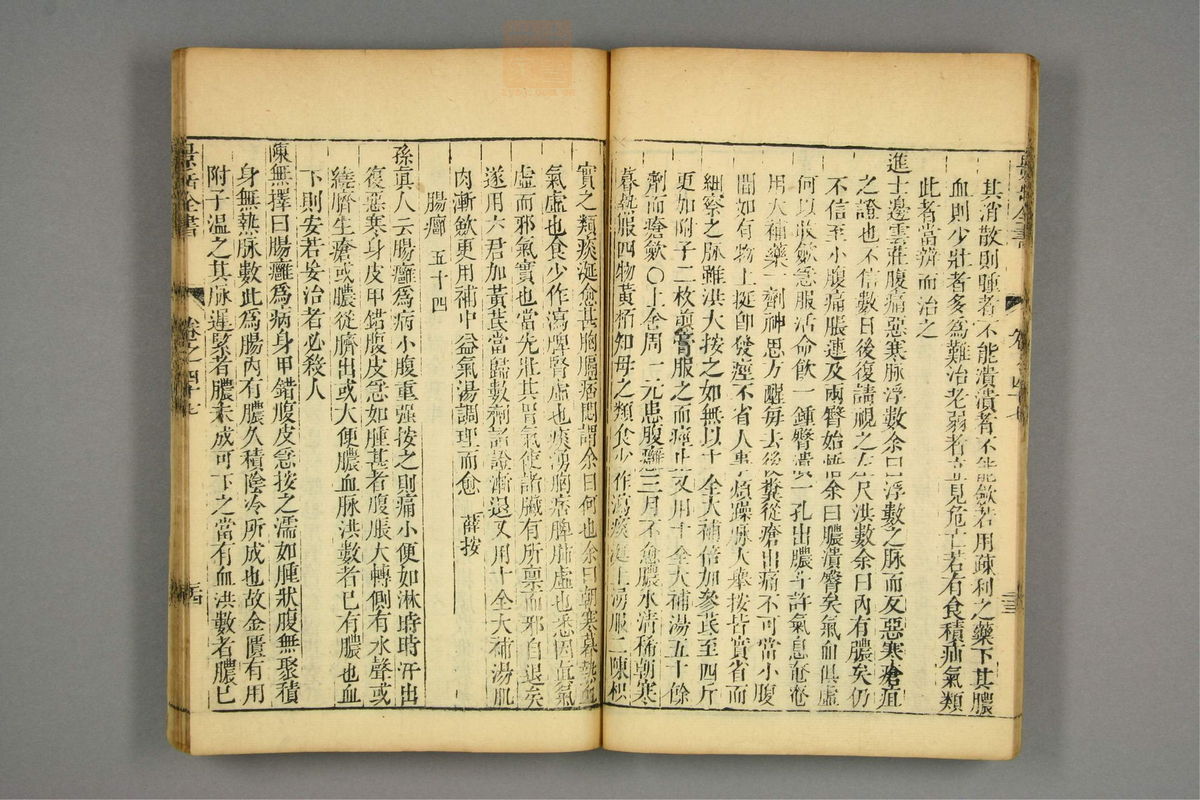 其消散則腫者不能潰潰者不能斂若用疎利之藥下其膿
血則少壯者多為難治老弱者立見危亡若有食積疝氣類
此者當辨而治之
進士邊雲莊腹痛惡寒脉浮數余曰浮數之脉而反惡寒瘡疽
之證也不信數日後復請視之左尺洪數余曰內有膿矣仍
不信至小腹痛脹連及兩臀始悟余曰膿潰臀矣氣血俱虛
何以收斂急服活命飲一鍾臀潰一孔出膿斗許氣息奄奄
用大補藥一劑神思方醒每去後糞從瘡出痛不可當小腹
間如有物上挺即發痙不省人事煩躁脉大舉按皆實省而
細察之脉雖洪大按之如無以十全大補倍加參茋至四斤
更加附子二枚煎膏服之而痙止又用十全大補湯五十餘
劑而瘡斂〇上舍周一元患腹癰三月不愈膿水清稀朝寒
暮熱服四物黃栢知母之類食少作瀉痰涎上湧服二陳枳
實之類痰涎愈甚胸膈痞悶謂余曰何也余曰朝寒暮熱血
氣虛也食少作瀉脾腎虛也痰湧胸痞脾肺虛也悉因真氣
虛而邪氣實也當先壯其胃氣使諸臟有所禀而邪自退矣
遂用六君加黃茋當歸數劑諸證漸退又用十全大補湯肌
肉漸斂更用補中益氣湯調理而愈　薛按
腸癰　五十四
孫真人云腸癰為病小腹重強按之則痛小便如淋時時汗出
復惡寒身皮甲錯腹皮急如腫甚者腹脹大轉側有水聲或
繞臍生瘡或膿從臍出或大便膿血脉洪數者已有膿也血
下則安若妄治者必殺人
陳無擇曰腸癰為病身甲錯腹皮急按之濡如腫狀腹無聚積
身無熱脉數此為腸內有膿久積陰冷所成也故金匱有用
附子溫之其脉遲緊者膿未成可下之當有血洪數者膿已
景岳全書
卷之四十七